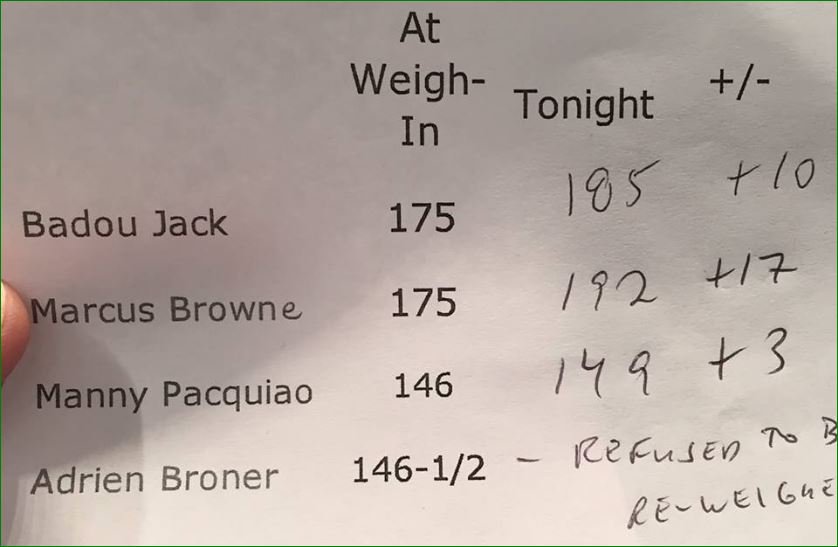 At
Weigh-
In Tonight +/-
Badou Jack 175 185 +10
Marcus Browne 175 192 +17
Manny Pacquiao 146 149 +3
Adrien Broner 146-1/2 - REFUSED TO B
RE-WEIGHE